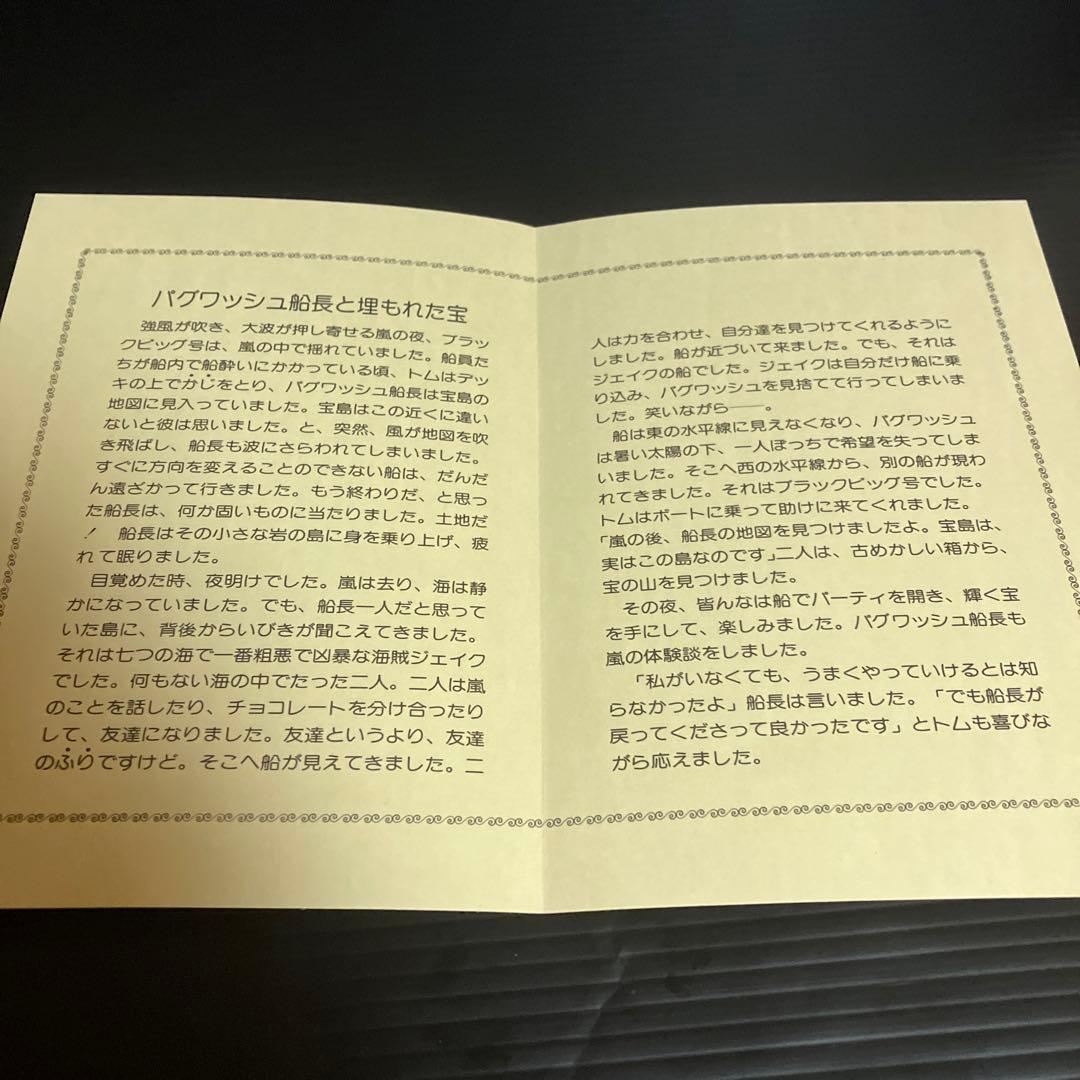 パグワッシュ船長と埋もれた宝
強風が吹き、大波が押し寄せる嵐の夜、ブラッ
クピッグ号は、嵐の中で揺れていました。船員た
ちが船内で船酔いにかかっている頃、トムはデッ
キの上でかじをとり、パグワッシュ船長は宝島の
地図に見入っていました。宝島はこの近くに違い
ないと彼は思いました。と、突然、風が地図を吹
き飛ばし、船長も波にさらわれてしまいました。
すぐに方向を変えることのできない船は、だんだ
ん遠ざかって行きました。もう終わりだ、と思っ
た船長は、何か固いものに当たりました。土地だ
! 船長はその小さな岩の島に身を乗り上げ、疲
れて眠りました。
目覚めた時、夜明けでした。嵐は去り、海は静
かになっていました。でも、船長一人だと思って
いた島に、背後からいびきが聞こえてきました。
それは七つの海で一番粗悪で凶暴な海賊ジェイク
でした。何もない海の中でたった二人。二人は嵐
のことを話したり、チョコレートを分け合ったり
して、友達になりました。友達というより、友達
のふりですけど。そこへ船が見えてきました。二
人は力を合わせ、自分達を見つけてくれるように
しました。船が近づいて来ました。でも、それは
ジェイクの船でした。ジェイクは自分だけ船に乗
り込み、パグワッシュを見捨てて行ってしまいま
した。笑いながら――。
船は東の水平線に見えなくなり、パグワッシュ
は暑い太陽の下、一人ぼっちで希望を失ってしま
いました。そこへ西の水平線から、別の船が現わ
れてきました。それはブラックピッグ号でした。
トムはボートに乗って助けに来てくれました。
「嵐の後、船長の地図を見つけましたよ。宝島は、
実はこの島なのです」二人は、古めかしい箱から、
宝の山を見つけました。
その夜、皆んなは船でパーティを開き、輝く宝
を手にして、楽しみました。パグワッシュ船長も
嵐の体験談をしました。
「私がいなくても、うまくやっていけるとは知
らなかったよ」船長は言いました。「でも船長が
戻ってくださって良かったです」とトムも喜びな
がら応えました。